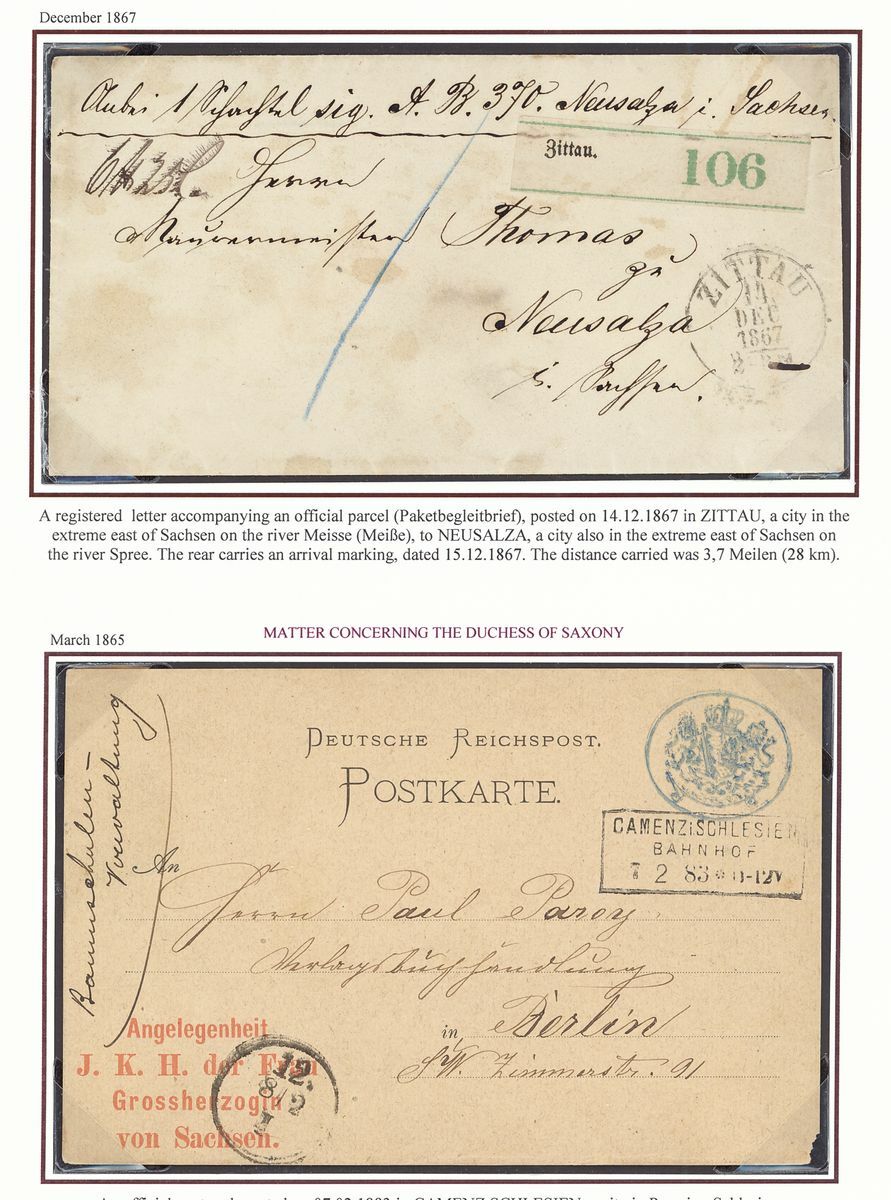 December 1867
Anbei 1 Schachtel sig. A. B. 370. Neusalza i. Sachsen.
Zittau.
106
Herrn
Maurermeister Thomas
zu
Neusalza
i. Sachsen.
ZITTAU
14.
DEC
1867
A registered letter accompanying an official parcel (Paketbegleitbrief), posted on 14.12.1867 in ZITTAU, a city in the
extreme east of Sachsen on the river Meisse (Meiße), to NEUSALZA, a city also in the extreme east of Sachsen on
the river Spree. The rear carries an arrival marking, dated 15.12.1867. The distance carried was 3,7 Meilen (28 km).
March 1865
MATTER CONCERNING THE DUCHESS OF SAXONY
Baumschulen-
Verwaltung
DEUTSCHE REICHSPOST.
POSTKARTE.
CAMENZiSCHLESIEN
BAHNHOF
7 2 83 11-12V
An
Herrn Paul Parey
Verlagsbuchhandlung
in Berlin
SW. Zimmerstr. 91
Angelegenheit
J. K. H. der Frau
Grossherzogin
von Sachsen.
12.
8/2